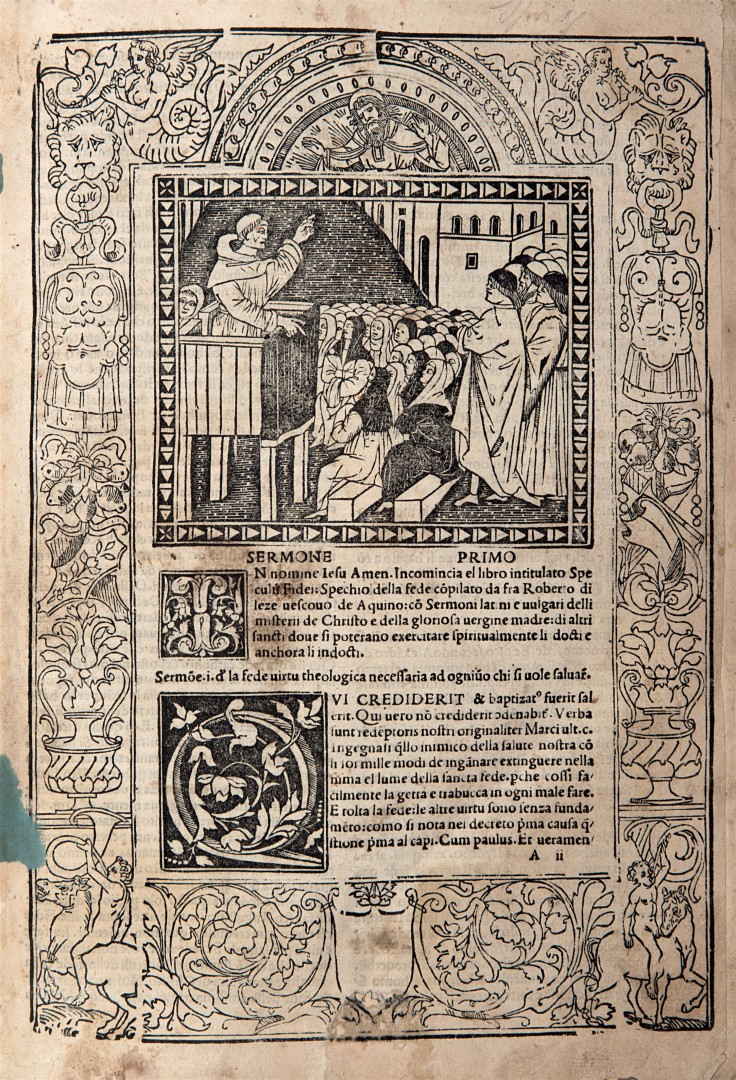 SERMONE PRIMO
IN nomine Iesu Amen. Incomincia el libro intitulato Spe
culū Fidei: Spechio della fede cōpilato da fra Roberto di
leze uescouo de Aquino: cō Sermoni latini e uulgari delli
misterii de Christo e della gloriosa uergine madre: di altri
sancti doue si poterano exercitare spiritualmente li docti e
anchora li indocti.
Sermōe .i. d' la fede uirtu theologica necessaria ad ogniūo chi si uole saluar̄.
QVI CREDIDERIT & baptizatꝰ fuerit sal
erit. Qui uero nō crediderit Verba
sunt redēptoris nostri originaliter Marci ult. c.
ingegnasi q̄llo inimico della salute nostra cō
mille modi de ingānare extinguere nella
nima el lume della sancta fede. pche cossi fa/
cilmente la getta e trabucca in ogni male fare.
E tolta la fede: le altre uirtu sono senza funda/
mēto: como si nota nel decreto p̄ma causa q̄/
stione p̄ma al capi. Cum paulus. Et ueramen/
A ii